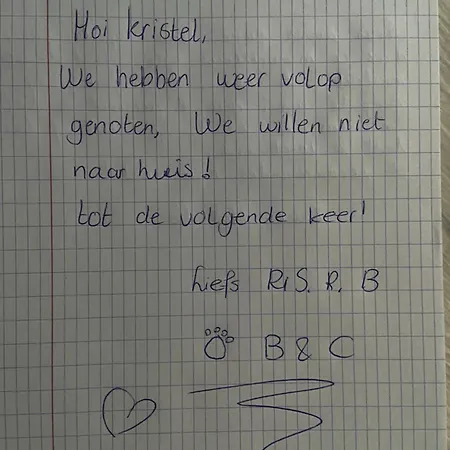 Hoi kristel,
We hebben weer volop
genoten, We willen niet
naar huis!
tot de volgende keer!
Liefs R, S, R, B
B & C